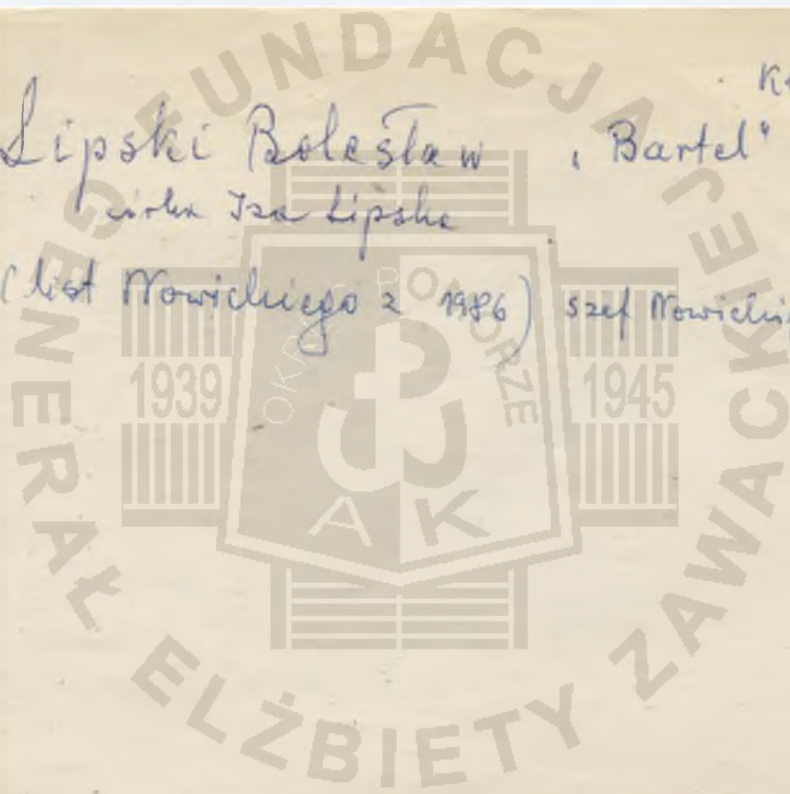 Lipski Bolesław „Bartel"
córka Iza Lipska
(list Nowickiego z 1986) szef Nowickieg
FUNDACJA GENERAŁ ELŻBIETY ZAWACKIEJ
OKRĘG POMORZE
1939 1945
AK